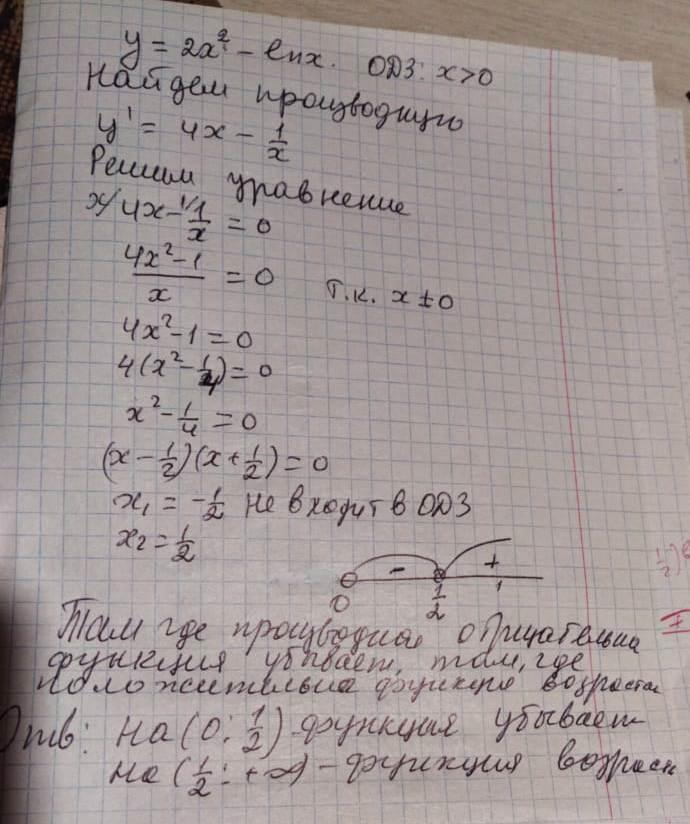 y = 2x² - lnx. ОДЗ: x>0
Найдем производную
y' = 4x - 1/x
Решим уравнение
x/ 4x - 1/ 1/x = 0
(4x²-1)/x = 0 т.к. x ≠ 0
4x²-1=0
4(x²-1/4)=0
x²-1/4=0
(x-1/2)(x+1/2)=0
x₁ = -1/2 не входит в ОДЗ
x₂=1/2
- +
0 1/2
Там где производная отрицательна
функция убывает, там, где
положительна функция возрастае
Отв: На (0; 1/2) функция убывает
на (1/2; +∞) - функция возраст